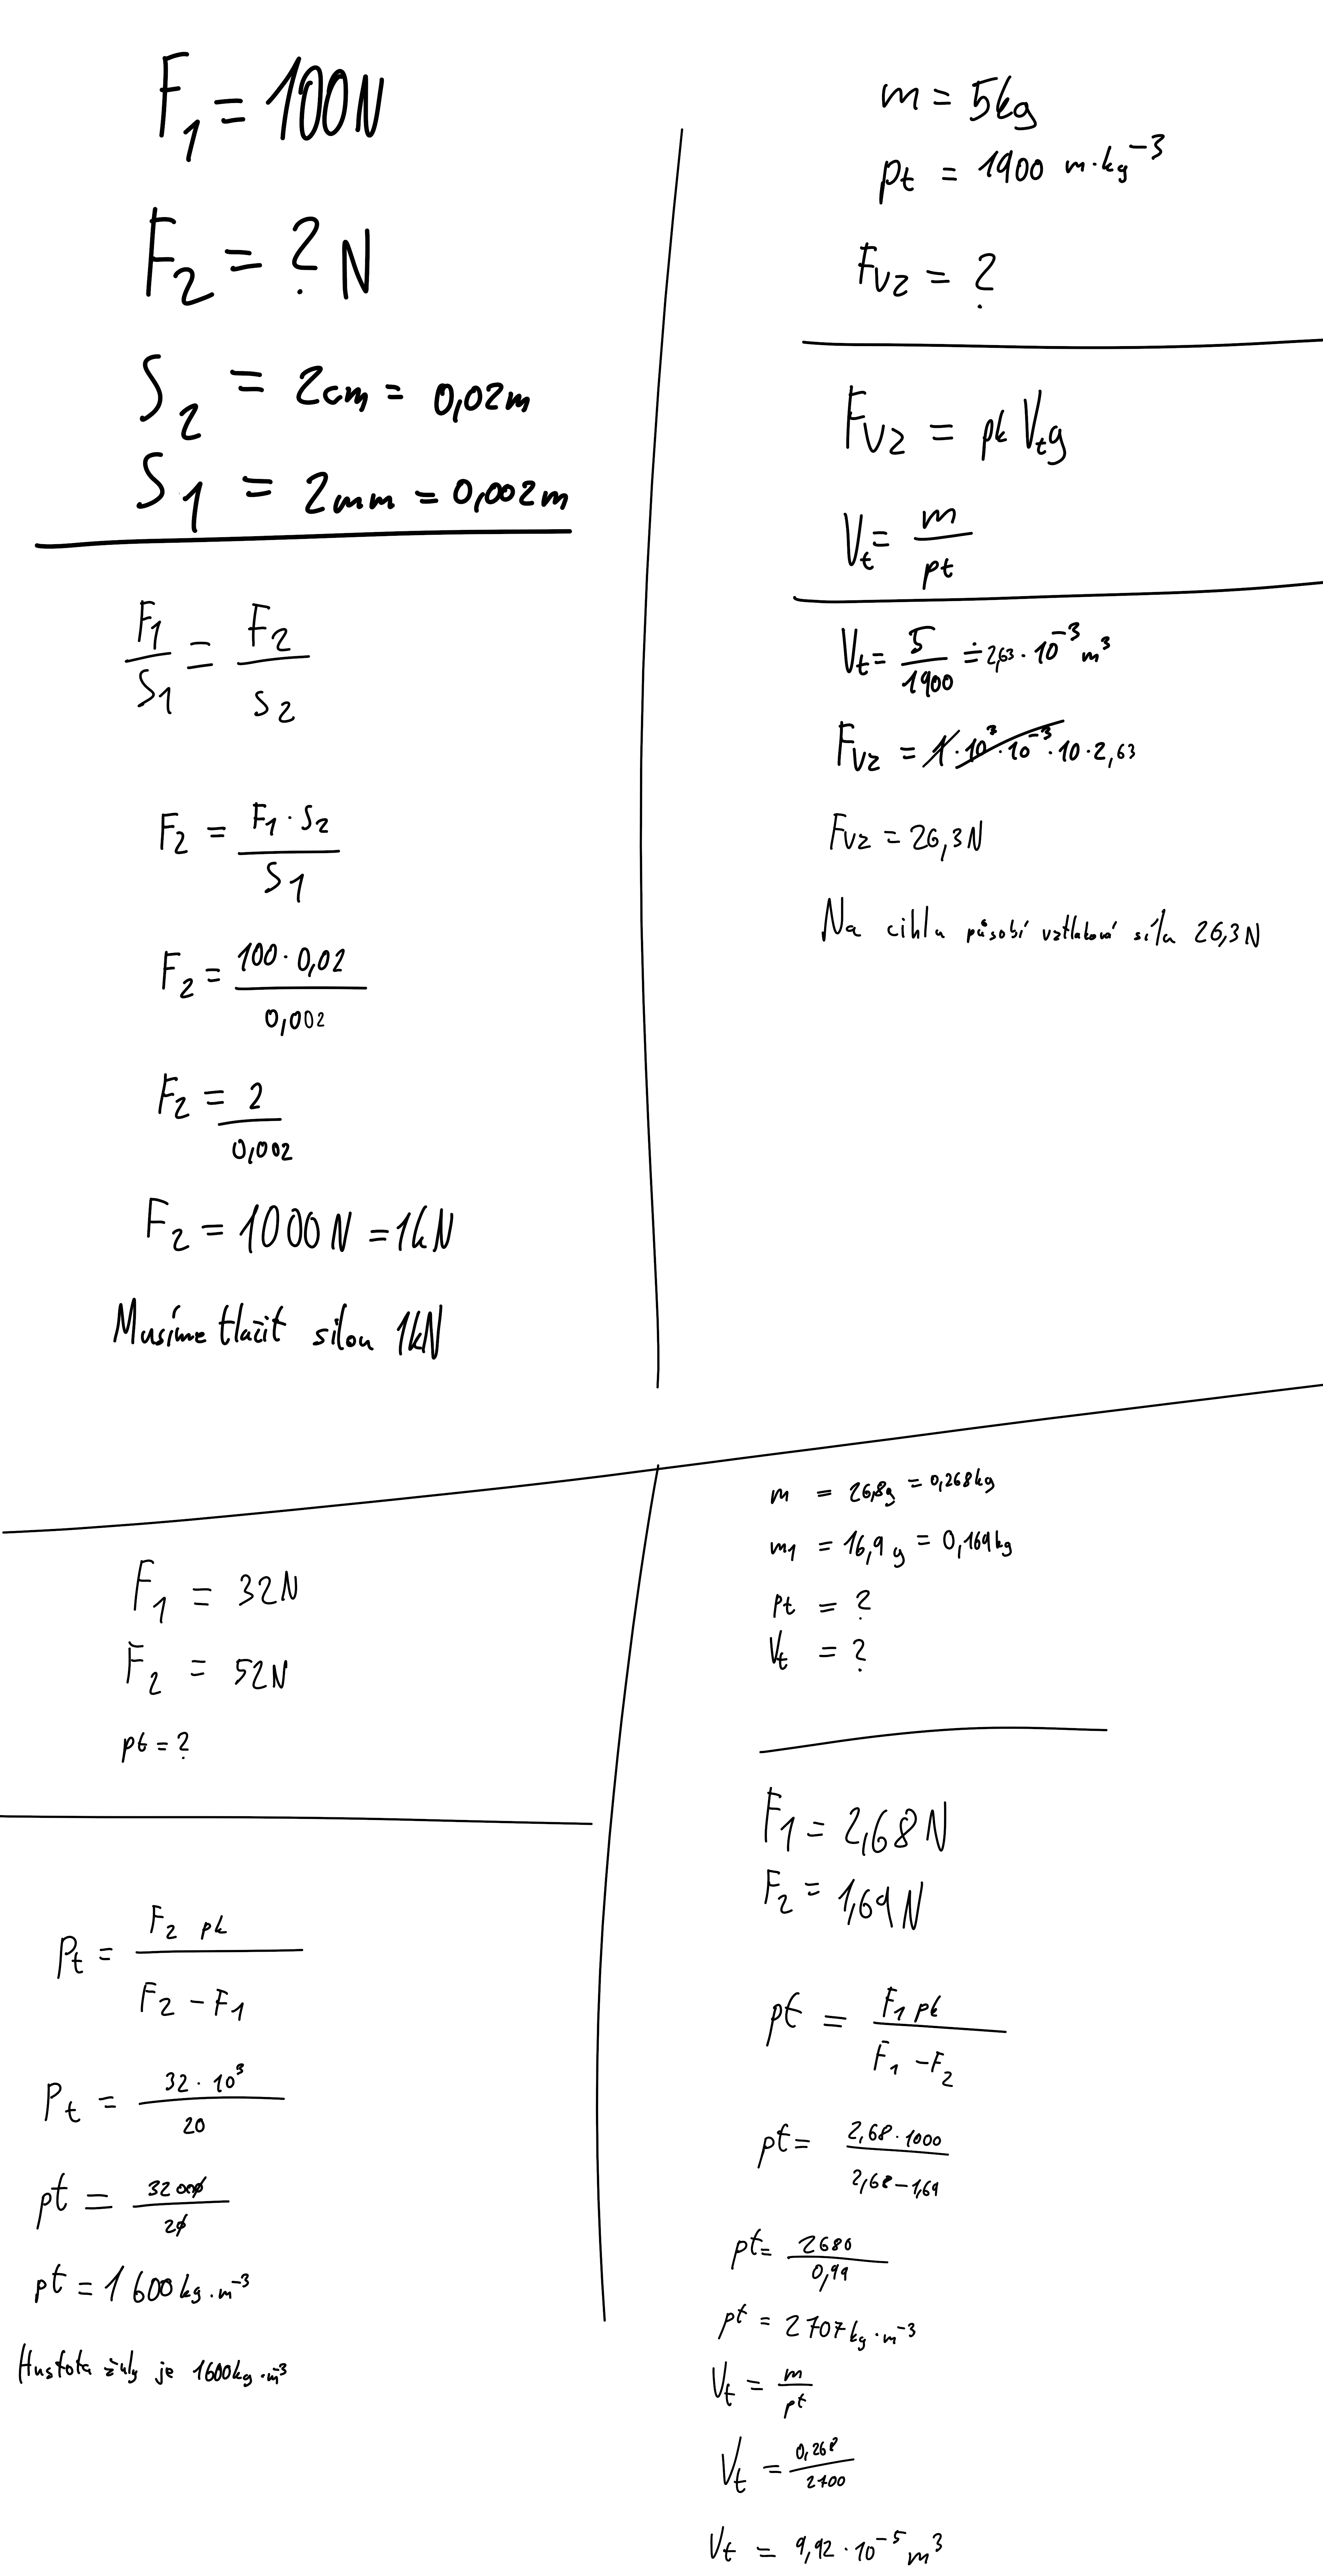 F₁ = 100N
F₂ = ? N
S₂ = 2cm = 0,02m
S₁ = 2mm = 0,002m
F₁/S₁ = F₂/S₂
F₂ = F₁ · S₂ / S₁
F₂ = 100 · 0,02 / 0,002
F₂ = 2 / 0,002
F₂ = 1000N = 1kN
Musíme tlačit silou 1kN
m = 5kg
pt = 1900 m·kg⁻³
Fvz = ?
Fvz = pk Vt g
Vt = m / pt
Vt = 5 / 1900 ≐ 2,63 · 10⁻³ m³
Fvz = 1 · 10³ · 10⁻³ · 10 · 2,63
Fvz = 26,3N
Na cihlu působí vztlaková síla 26,3N
F₁ = 32N
F₂ = 52N
pt = ?
Pt = F₂ pk / F₂ - F₁
Pt = 32 · 10³ / 20
pt = 32000 / 20
pt = 1600kg·m⁻³
Hustota žuly je 1600kg·m⁻³
m = 26,8g = 0,268kg
m₁ = 16,9g = 0,169kg
pt = ?
Vt = ?
F₁ = 2,68N
F₂ = 1,69N
pt = F₁ pk / F₁ - F₂
pt = 2,68 · 1000 / 2,68 - 1,69
pt = 2680 / 0,99
pt = 2707kg·m⁻³
Vt = m / pt
Vt = 0,268 / 2700
Vt = 9,92 · 10⁻⁵ m³